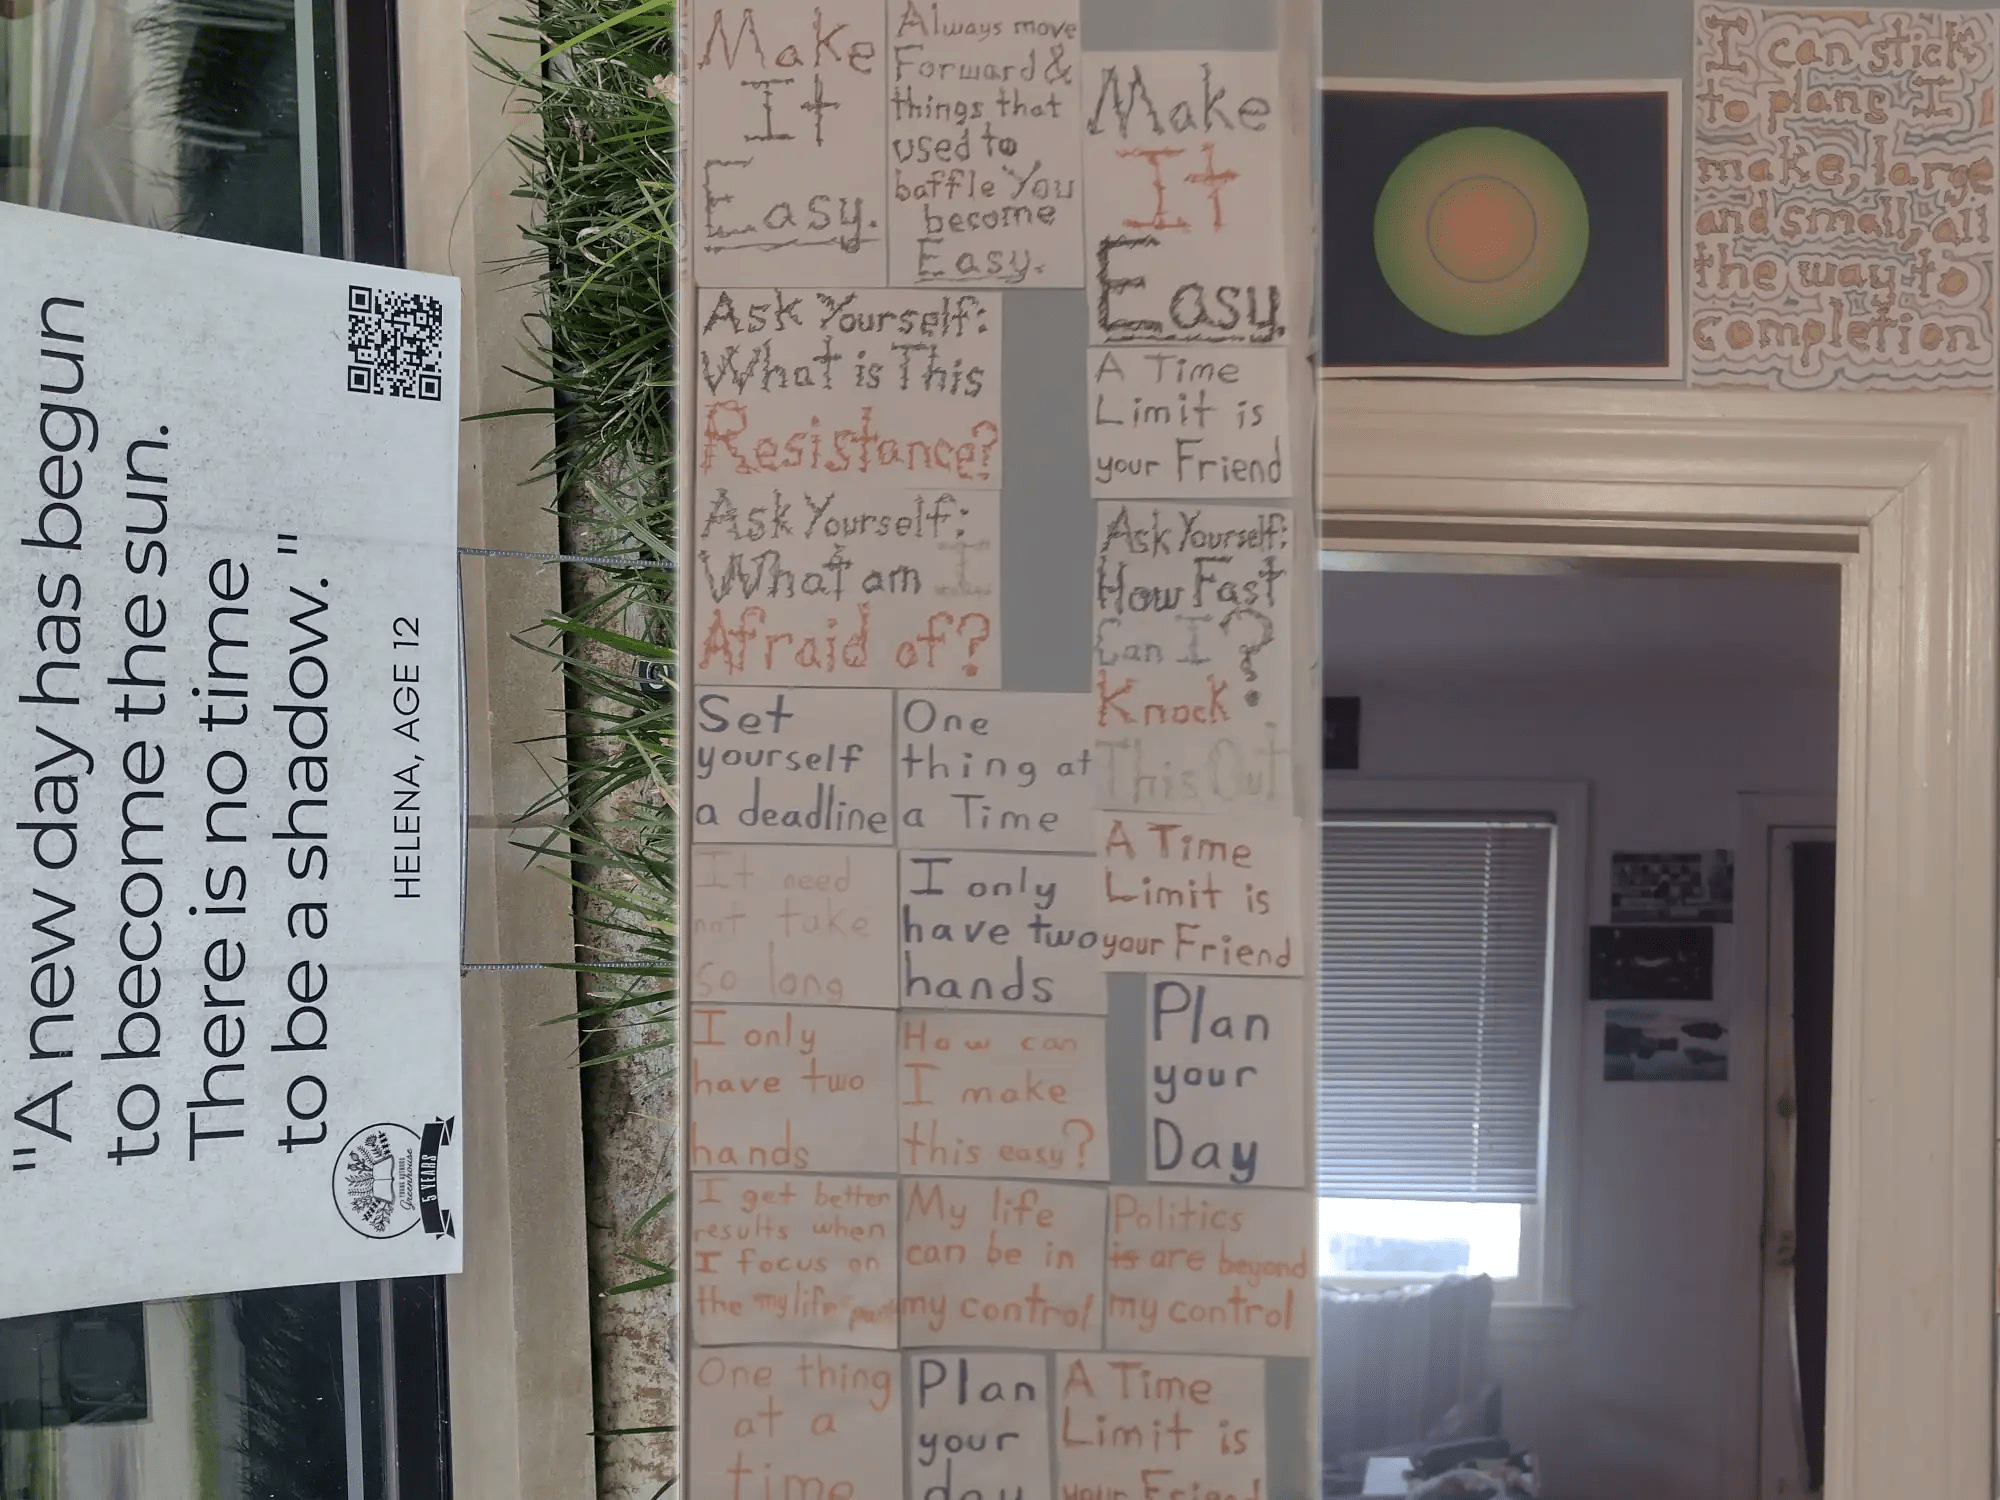 "A new day has begun
to become the sun.
There is no time
to be a shadow."
HELENA, AGE 12
YOUNG AUTHORS
Greenhouse
5 YEARS
Make
It
Easy.
Always move
Forward &
things that
used to
baffle You
become
Easy.
Make
It
Easy.
Ask Yourself:
What is This
Resistance?
A Time
Limit is
your Friend
Ask Yourself:
What am I
Afraid of?
Ask Yourself:
How Fast
Can I ?
Knock
This Out
Set
yourself
a deadline
One
thing at
a Time
A Time
Limit is
your Friend
It need
not take
so long
I only
have two
hands
I only
have two
hands
How can
I make
this easy?
Plan
your
Day
I get better
results when
I focus on
the my life part
My life
can be in
my control
Politics
is are beyond
my control
One thing
at a
time
Plan
your
day
A Time
Limit is
your Friend
I can stick
to plans I
make, large
and small, all
the way to
completion